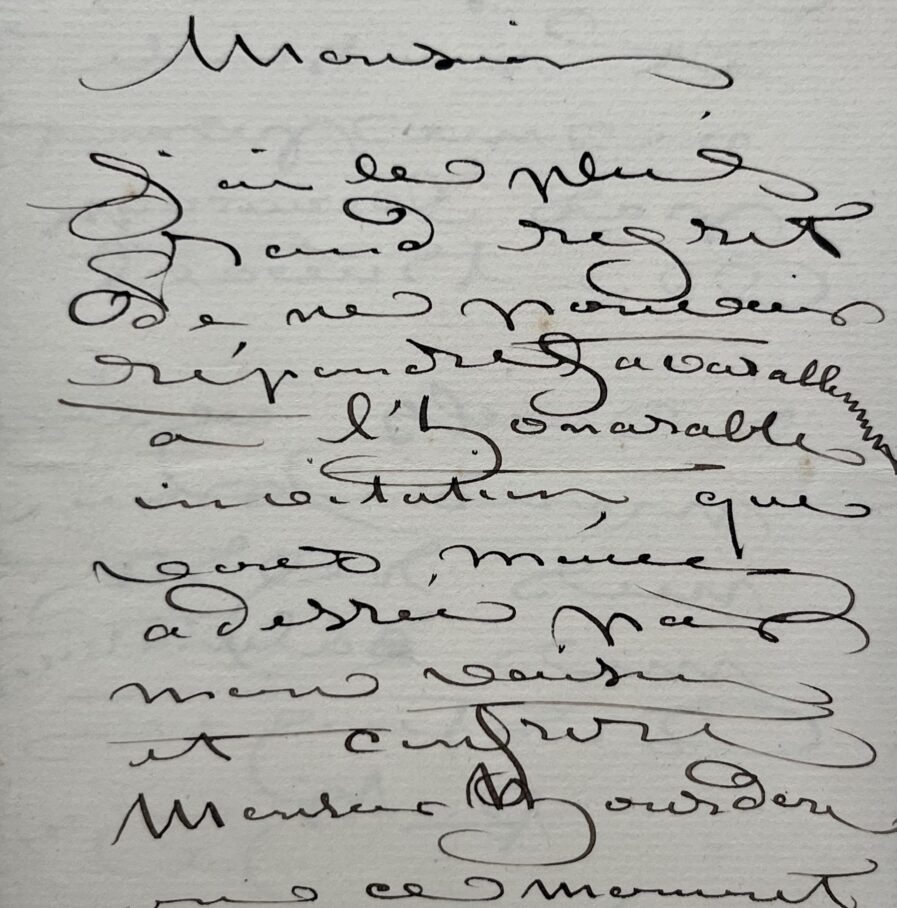 Monsieur
j'ai le plus
grand regret
de ne pouvoir
répondre favorablement
à l'honorable
invitation que
vous m'avez
adressée par
mon voisin
et confrère
Monsieur
ce moment